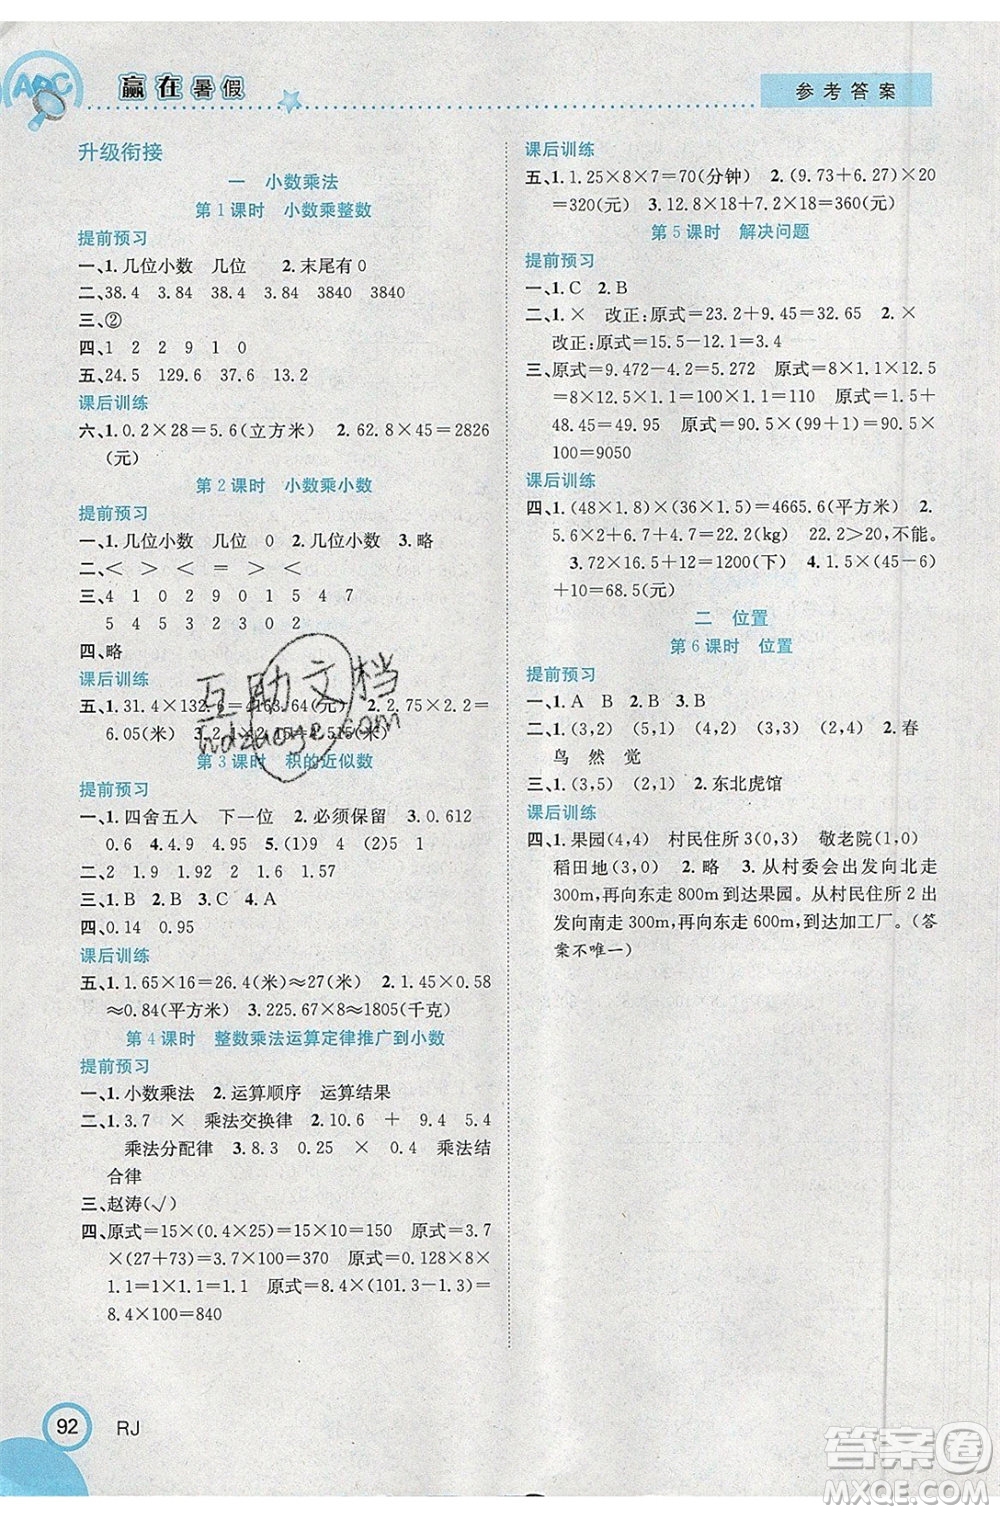 ABC
赢在暑假
参考答案
升级衔接
一 小数乘法
第1课时 小数乘整数
提前预习
一、1.几位小数 几位 2.末尾有0
二、38.4 3.84 38.4 3.84 3840 3840
三、②
四、1 2 2 9 1 0
五、24.5 129.6 37.6 13.2
课后训练
六、1.0.2×28=5.6(立方米) 2.62.8×45=2826
(元)
第2课时 小数乘小数
提前预习
一、1.几位小数 几位 0 2.几位小数 3.略
二、< > < > > <
三、4 1 0 2 9 0 1 5 4 7
5 4 5 3 2 3 0 2
四、略
课后训练
五、1.31.4×132.6=4163.64(元) 2.2.75×2.2=
6.05(米) 3.2.1×2.15=4.515(米)
第3课时 积的近似数
提前预习
一、1.四舍五入 下一位 2.必须保留 3.0.612
0.6 4.1.920 1.92 5.(1)9 (2)4
二、2 1.6 1.58 9 9.2 9.20
三、1.B 2.B 3.C 4.A
四、0.14 0.95
课后训练
五、1.1.65×16=26.4(米)≈27(米) 2.1.45×0.58
≈0.84(平方米) 3.225.67×8≈1805(千克)
第4课时 整数乘法运算定律推广到小数
提前预习
一、1.小数乘法 2.运算顺序 运算结果
二、1.3.7 × 乘法交换律 2.10.6 + 9.4 5.4
乘法分配律 3.8.3 0.25 × × 乘法结
合律
三、赵涛(√)
四、原式=15×(0.4×25)=15×10=150 原式=3.7
×(27+73)=3.7×100=370 原式=0.128×8×
1.1=1×1.1=1.1 原式=8.4×(101.3-1.3)=
8.4×100=840
92
RJ
课后训练
五、1.1.25×8×7=70(分钟) 2.(9.73+6.27)×20
=320(元) 3.12.8×18+7.2×18=360(元)
第5课时 解决问题
提前预习
一、1.C 2.B
二、1.× 改正:原式=23.2+9.45=32.65 2.×
改正:原式=15.5-12.1=3.4
三、原式=9.472-4.2=5.272 原式=8×1.1×12.5
=8×12.5×1.1=100×1.1=110 原式=1.5+
48.45=49.95 原式=90.5×(99+1)=90.5×
100=9050
课后训练
四、1.(48×1.8)×(36×1.5)=4665.6(平方米) 2.
5.6×2+6.7+4.3=22.2(kg) 22.2>20,不能。
3.72×15+12×10=1200(下) 4.1.5×(45-6)
+10=68.5(元)
二 位置
第6课时 位置
提前预习
一、1.A B 2.B 3.B
二、1.(3,2) (5,1) (4,2) (3,3) (2,4) 2.春
鸟 然 觉
三、1.(3,5) (2,1) 2.东北虎馆
课后训练
四、1.果园(4,4) 村民住所3(0,3) 敬老院(1,0)
稻田地(3,0) 2.略 3.从村委会出发向北走
300m,再向东走800m到达果园。从村民住所2出
发向南走300m,再向东走600m,到达加工厂。(答
案不唯一)
互助文档
答案卷
MXQE.COM